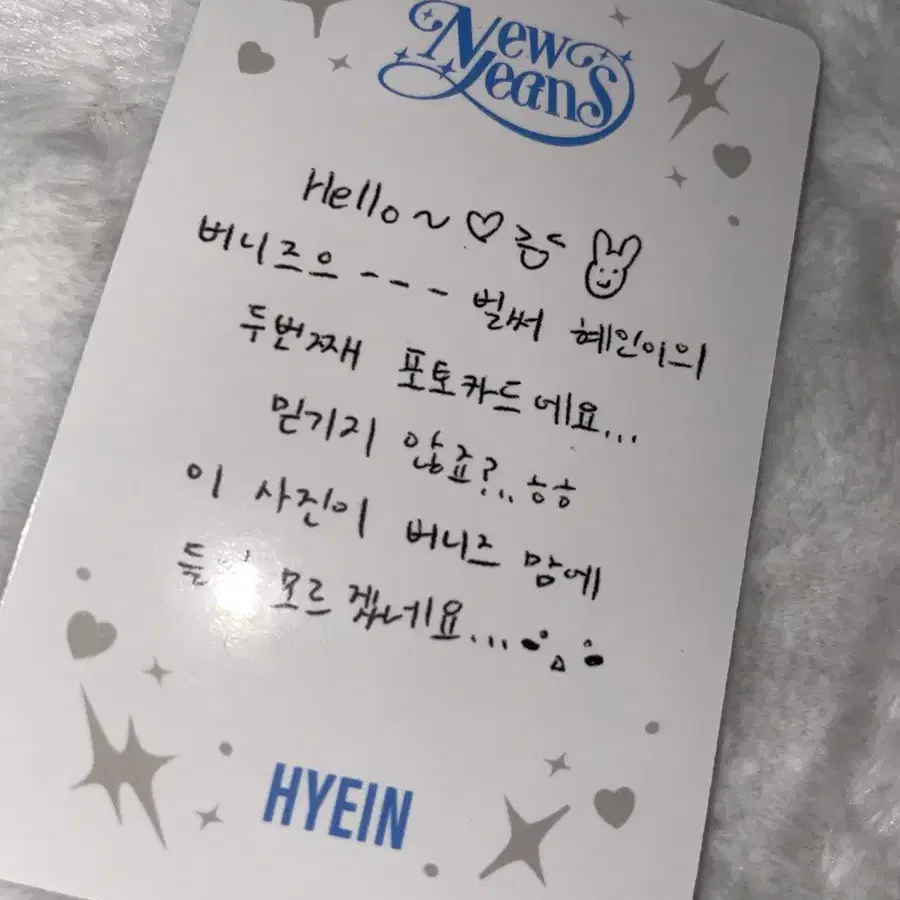 New Jeans
Hello~♡ 쿰
버니즈으--- 벌써 혜인이의
두번째 포토카드에요...
믿기지 않죠?.. ㅎㅎ
이 사진이 버니즈 맘에
모르겠네요...
HYEIN